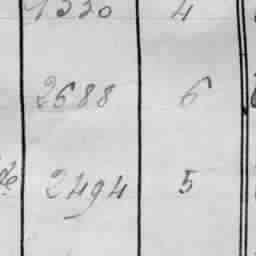 1330 4
2688 6
de 2494 5